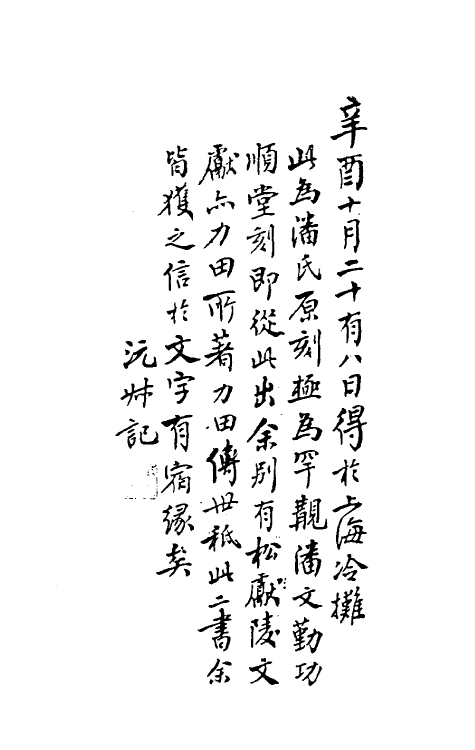 辛酉十月二十有八日得於上海冷攤
此為潘氏原刻極為罕覯潘文勤功
順堂刻即從此出余别有松陵文
獻亦力田所著力田傳世秖此二書余
皆獲之信於文字有宿緣矣
沅叔記